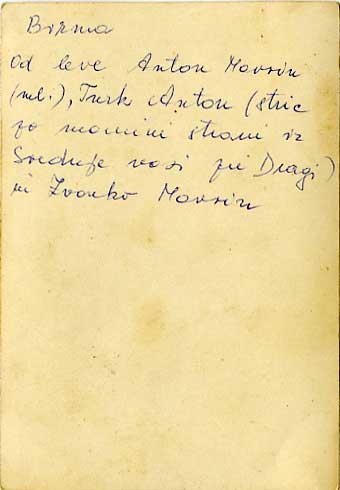 Birma
Od leve Anton Mavrin
(ml.), Turk Anton (stric
po mamini strani iz
Srednje vasi pri Dragi)
in Zvonko Mavrin